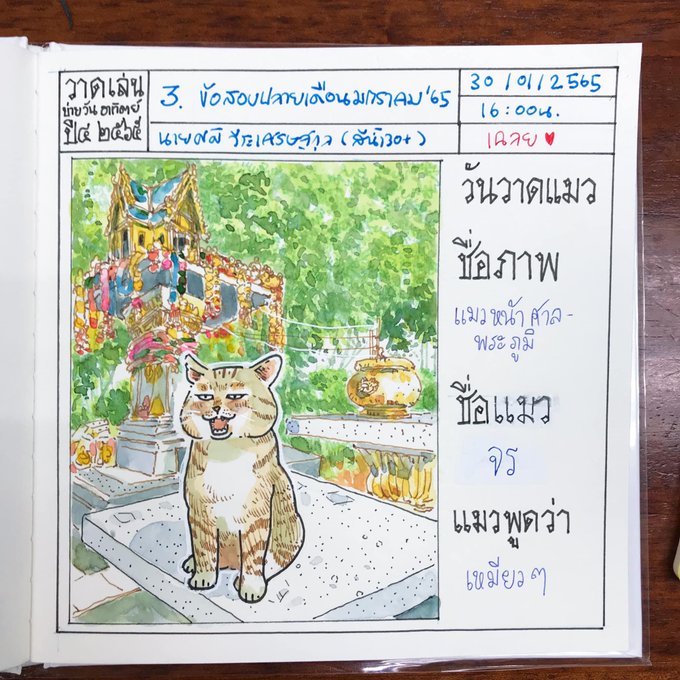 วาดเล่น
บ่ายวันอาทิตย์
ปี๔ ๒๕๖๕
3. ข้อสอบปลายเดือนมกราคม '65
นาย วีระเศรษฐกุล (สีน้ำ30+)
30/01/2565
16:00น.
เฉลย ♥
วันวาดแมว
ชื่อภาพ
แมวหน้าศาล-
พระภูมิ
ชื่อแมว
จร
แมวพูดว่า
เหมียวๆ